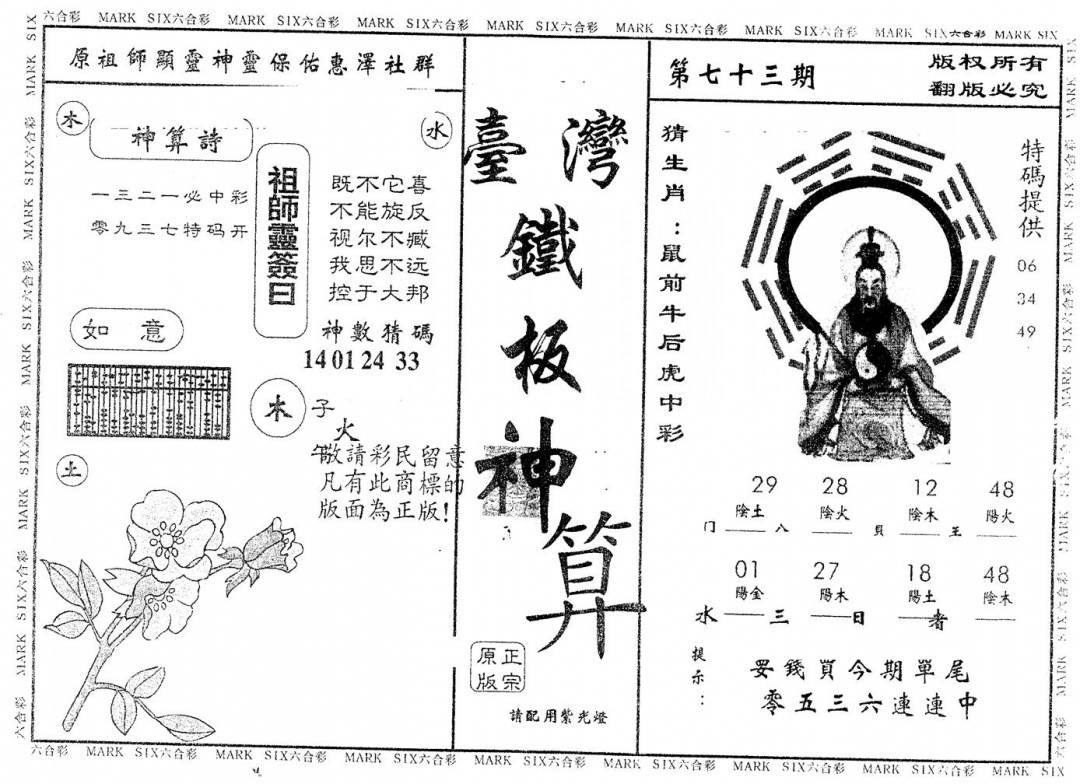 六合彩 MARK SIX六合彩 MARK SIX六合彩 MARK SIX六合彩 MARK SIX六合彩 MARK SIX六合彩 MARK SIX六合彩 MARK SIX六合彩 MARK SIX
原祖師顯靈神靈保佑惠澤社群
木
神算詩
水
一三二一必中彩
零九三七特码开
祖師靈簽曰
既不它喜
不能旋反
视尔不臧
我思不远
控于大邦
神數猜碼
14 01 24 33
如意
木
子
火
午
敬請彩民留意
凡有此商標的
版面為正版!
土
臺灣
鐵
板
神
算
正宗
原版
請配用紫光燈
第七十三期
版权所有
翻版必究
猜生肖:鼠前牛后虎中彩
特碼提供
06
34
49
29 28 12 48
陰土 陰火 陰木 陽火
门 八 貝 王
01 27 18 48
陽金 陽木 陽土 陰木
水 三 日 者
提示:
要錢買今期單尾
零五三六連連中
六合彩 MARK SIX六合彩 MARK SIX六合彩 MARK SIX六合彩 MARK SIX六合彩 MARK SIX六合彩 MARK SIX六合彩 MARK SIX六合彩 MARK SIX